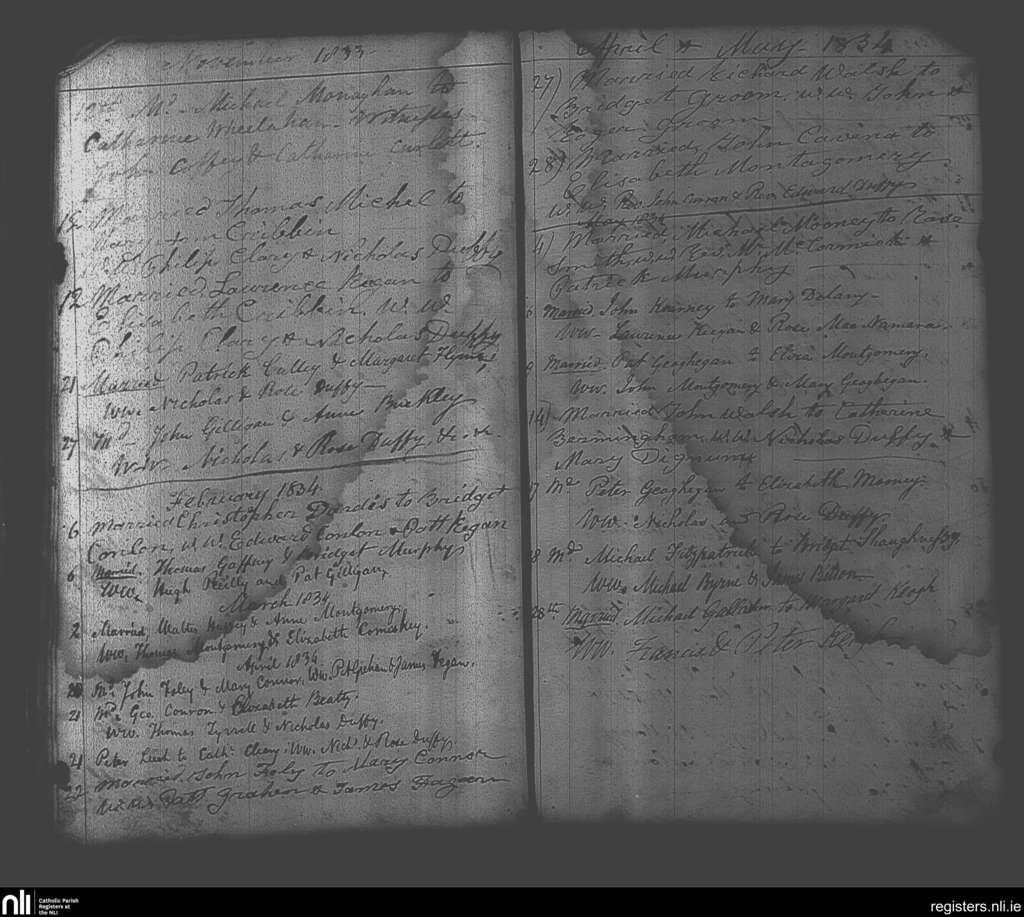 November 1833
Md. Michael Monaghan to
Catherine Wheelahan Witnesses
John Coffey & Catharine
Married Thomas Michel to
Cribbin
Philip Clary & Nicholas Duffy
12 Married Lawrence Keegan to
Elisabeth Cribbin, W. W.
Philip Clary & Nicholas Duffy
21 Married Patrick Culley & Margaret
WW. Nicholas & Rose Duffy
27 Md. John Gilligan & Anne Buckley
W.W. Nicholas & Rose Duffy
February 1834
6 Married Christopher Dardis to Bridget
Conlon, W.W. Edward Conlon & Patt Keegan
6 Married. Thomas Gaffney & Bridget Murphy
WW. Hugh Reilly and Pat Gilligan
March 1834
2 Married, Walter Hussey & Anne Montgomery
WW. Thomas Montgomery & Elizabeth Comiskey.
April 1834
20 Md. John Foley & Mary Connor, WW. Pat Grehan & James Fegan.
21 Md. Geo. Conron & Elizabeth Beatty.
WW. Thomas Tyrrell & Nicholas Duffy.
21 Peter to Cath. Cleary. WW. Nich. & Rose Duffy
22 Married John Foly to Mary Connor
W.W. Patt Grahen & James Fagan
April & May 1834
27) Married Richard Walsh to
Bridget Groom w.w. John &
Groom
28) Married, John to
Elisabeth Montgomery.
W.W. Rev. John Conron & Rev. Edward Duffy
May 1834
4) Married, Michael Mooney to Rose
Smith, w.w. Rev. Mr. McCormick &
Patrick Murphy
6 Married John Kearney to Mary Delany
WW. Laurence Keegan & Rose MacNamara
Married Pat Geoghegan & Eliza Montgomery.
WW. John Montgomery & Mary Geoghegan.
14) Married John Walsh to Catherine
Bermingham w.w. Nicholas Duffy &
Mary Dignum
Md. Peter Geoghegan to Elizabeth Mooney
WW. Nicholas and Rose Duffy
Md. Michael Fitzpatrick to Bridget Shaughnessy
WW. Michael Byrne & James
28th Married Michael to Margaret Keogh
WW. Francis & Peter
nli
Catholic Parish
Registers at
the NLI
registers.nli.ie